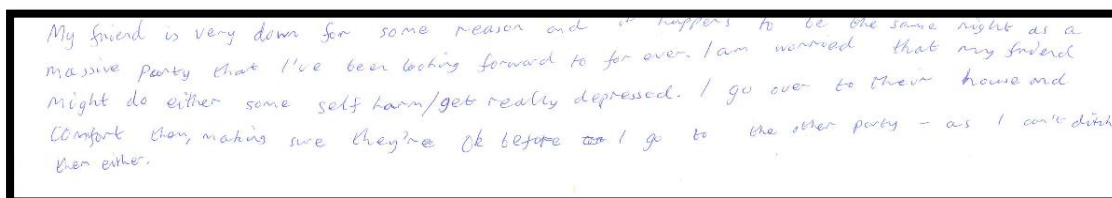 My friend is very down for some reason and it happens to be the same night as a
massive party that I've been looking forward to for ever. I am worried that my friend
might do either some self harm/get really depressed. I go over to their house and
comfort them, making sure they're ok before I go to the other party - as I can't ditch
them either.